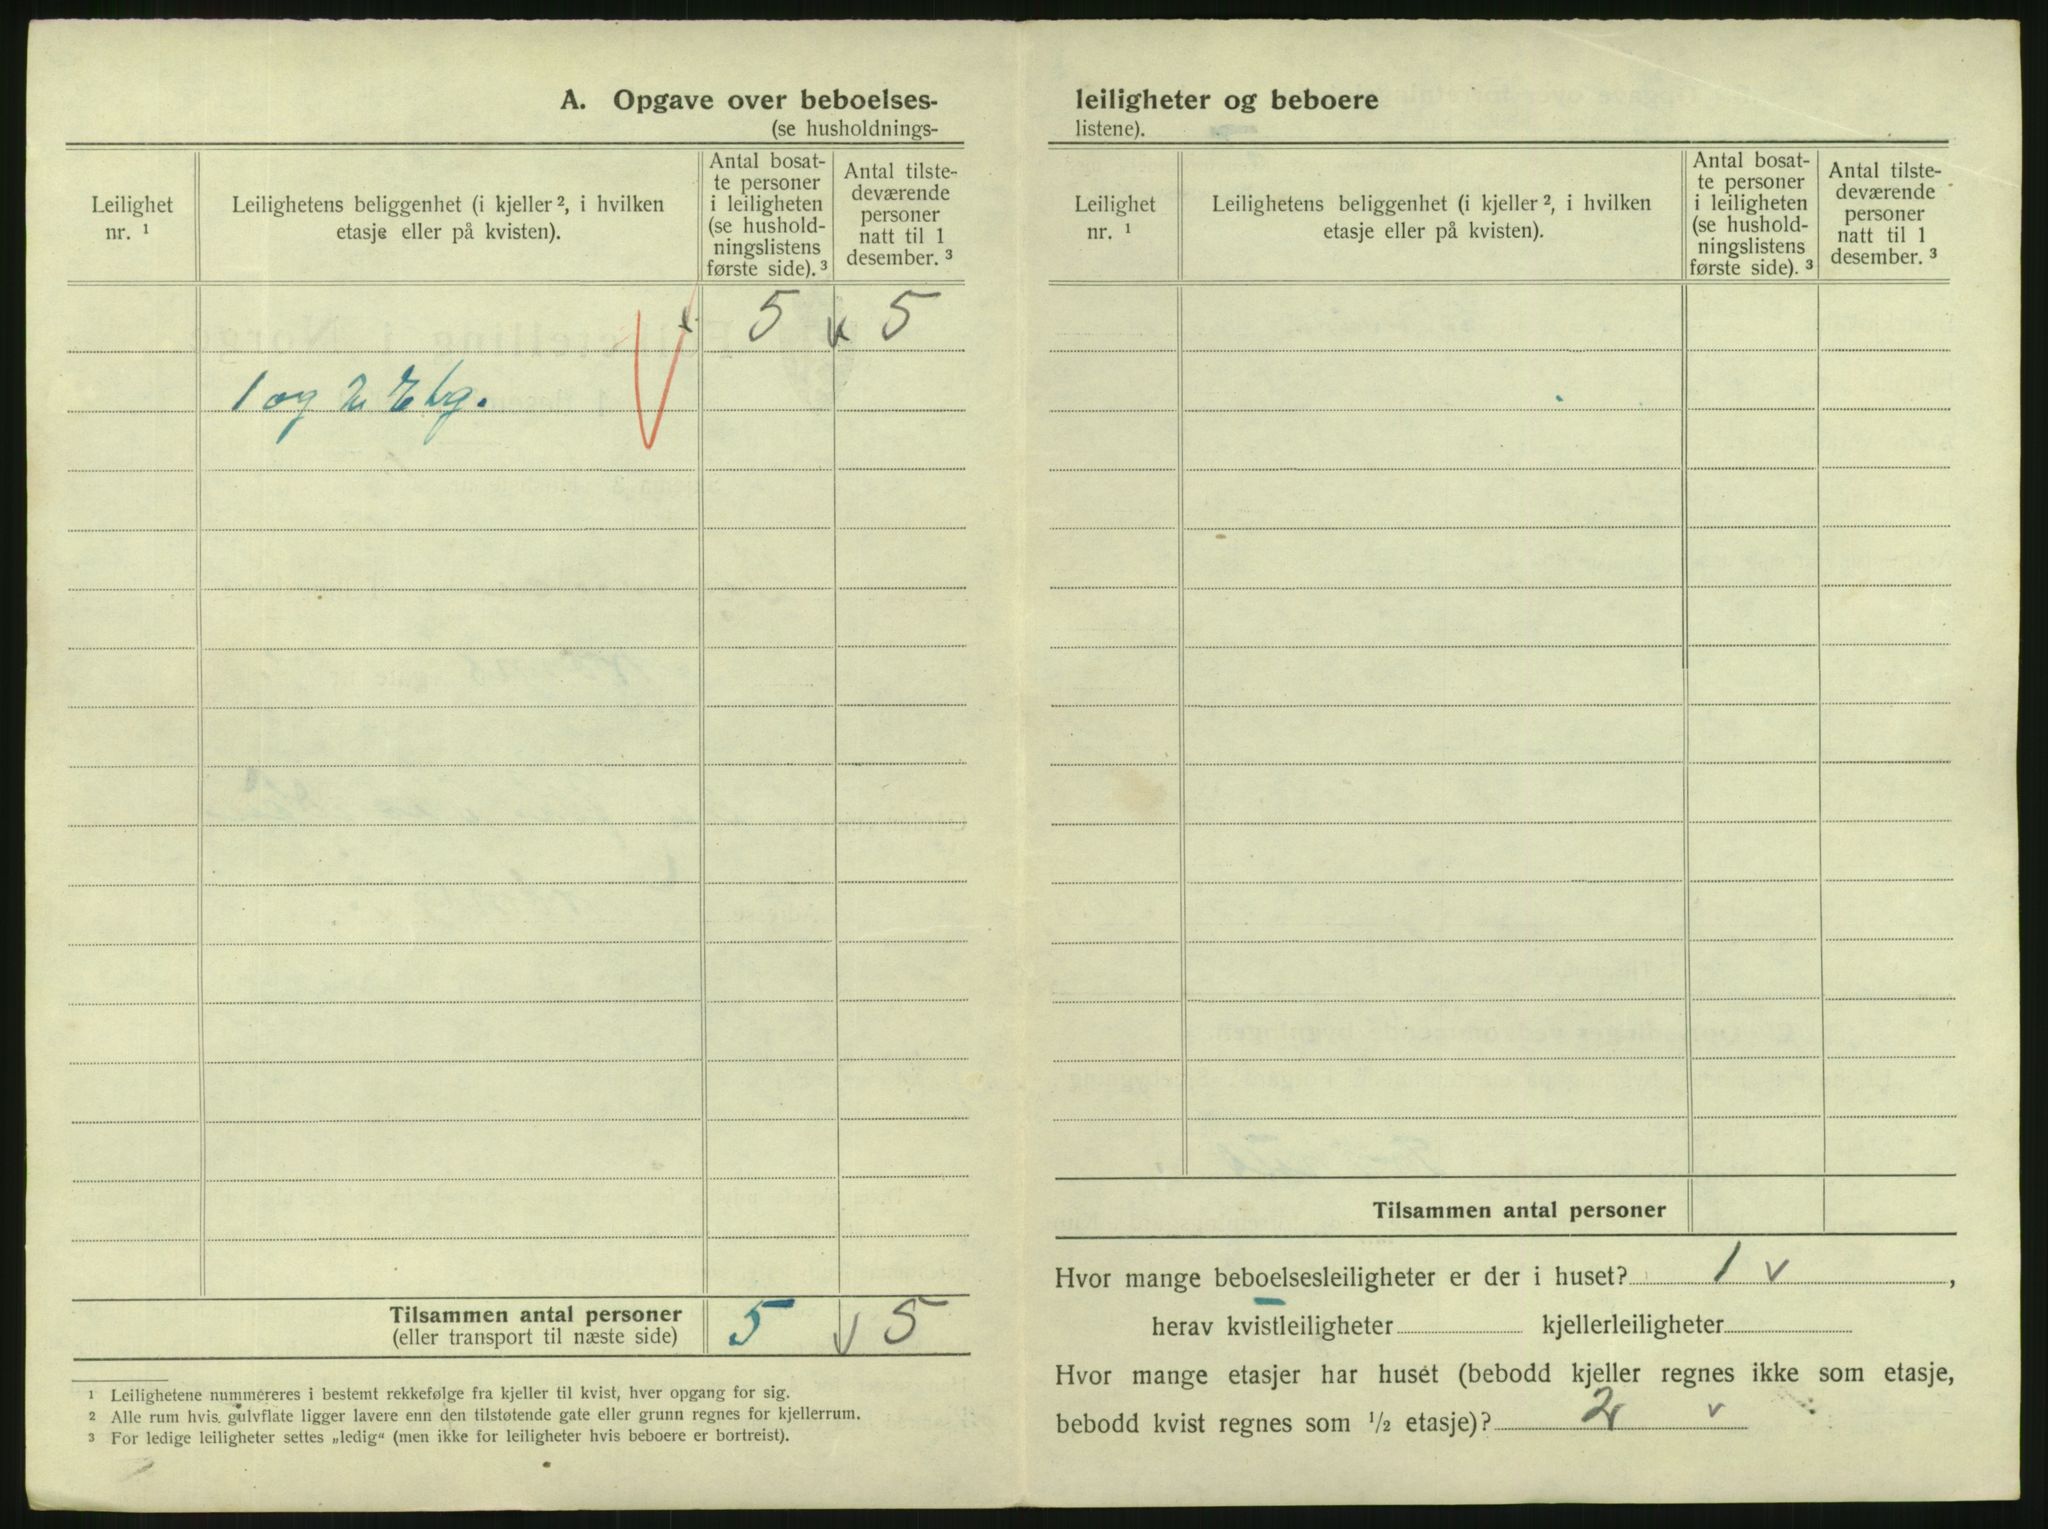 A. Opgave over beboelses-
(se husholdnings-
Leilighet
nr. ¹
Leilighetens beliggenhet (i kjeller ², i hvilken
etasje eller på kvisten).
Antal bosat-
te personer
i leiligheten
(se hushold-
ningslistens
første side). ³
Antal tilste-
deværende
personer
natt til 1
desember. ³
5 v 5
1 og 2 Etg.
Tilsammen antal personer
(eller transport til næste side)
5 v 5
¹ Leilighetene nummereres i bestemt rekkefølge fra kjeller til kvist, hver opgang for sig.
² Alle rum hvis gulvflate ligger lavere enn den tilstøtende gate eller grunn regnes for kjellerrum.
³ For ledige leiligheter settes „ledig“ (men ikke for leiligheter hvis beboere er bortreist).
leiligheter og beboere
listene).
Leilighet
nr. ¹
Leilighetens beliggenhet (i kjeller ², i hvilken
etasje eller på kvisten).
Antal bosat-
te personer
i leiligheten
(se hushold-
ningslistens
første side). ³
Antal tilste-
deværende
personer
natt til 1
desember. ³
Tilsammen antal personer
Hvor mange beboelsesleiligheter er der i huset? 1 v ,
herav kvistleiligheter kjellerleiligheter
Hvor mange etasjer har huset (bebodd kjeller regnes ikke som etasje,
bebodd kvist regnes som ½ etasje)? 2 v